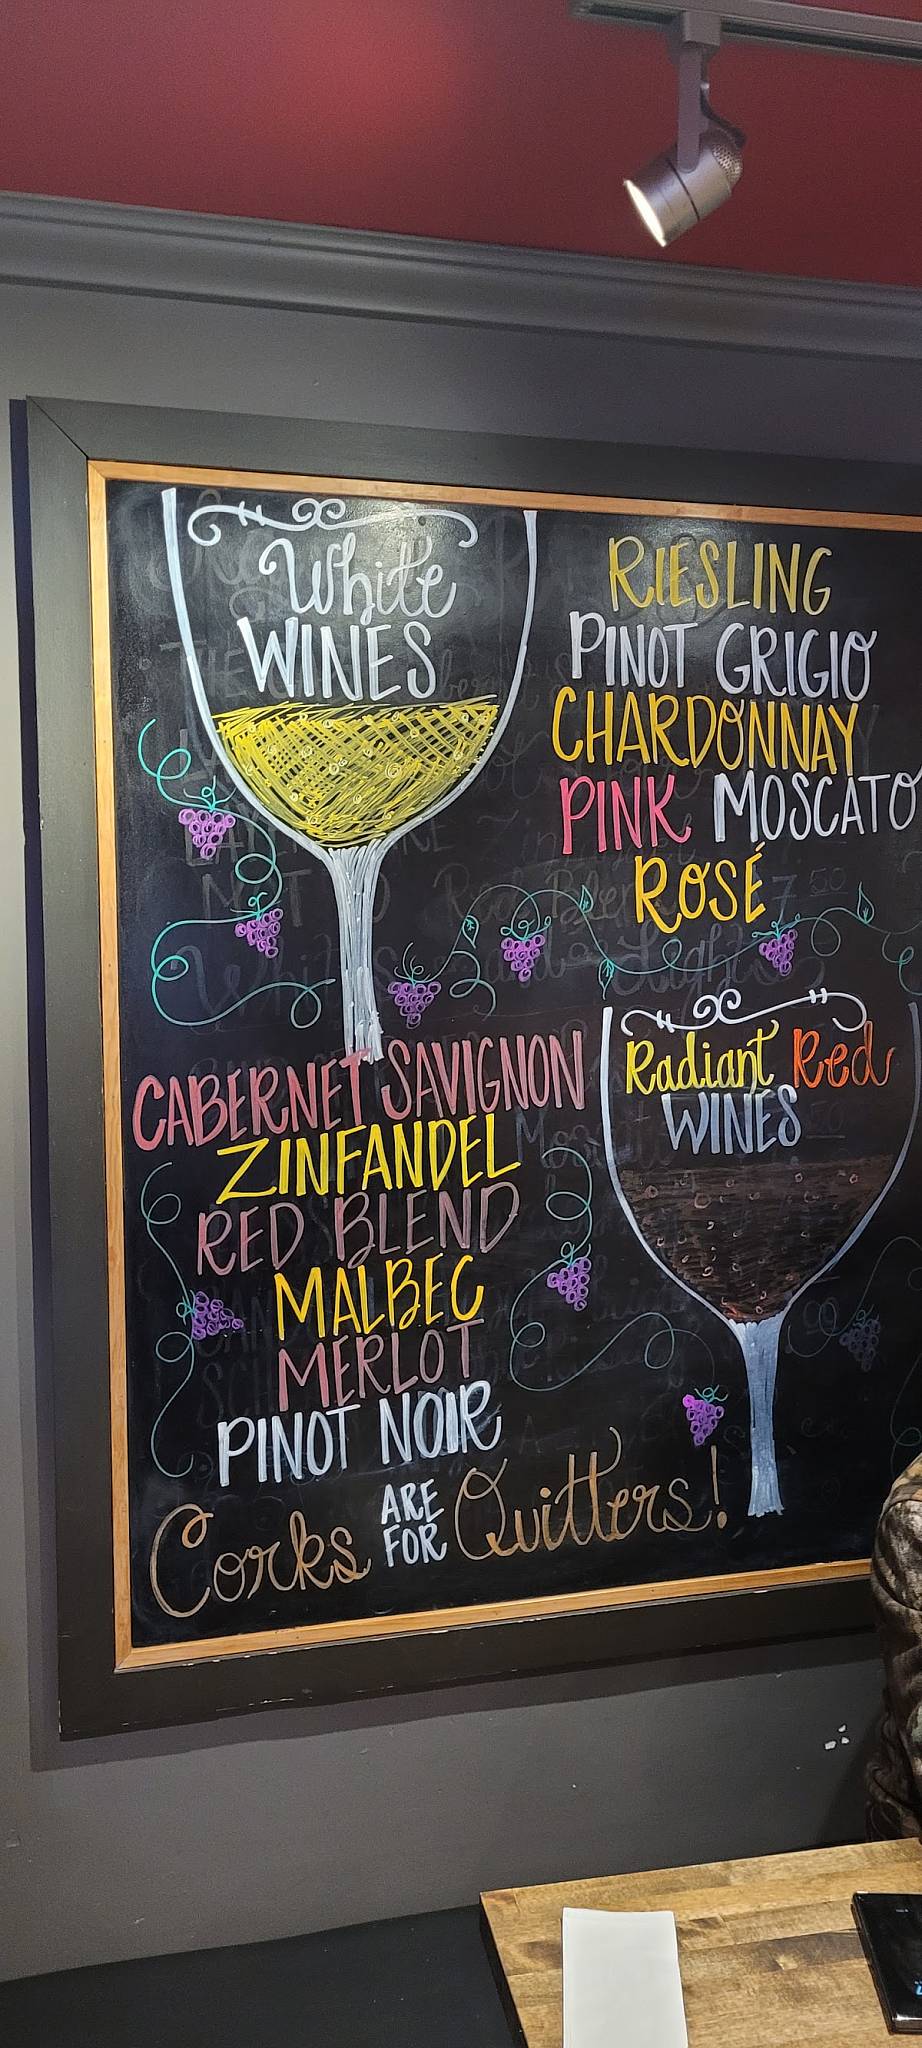 White
WINES
RIESLING
PINOT GRIGIO
CHARDONNAY
PINK MOSCATO
ROSÉ
CABERNET SAVIGNON
ZINFANDEL
RED BLEND
MALBEC
MERLOT
PINOT NOIR
Radiant Red
WINES
Corks ARE FOR Quitters!